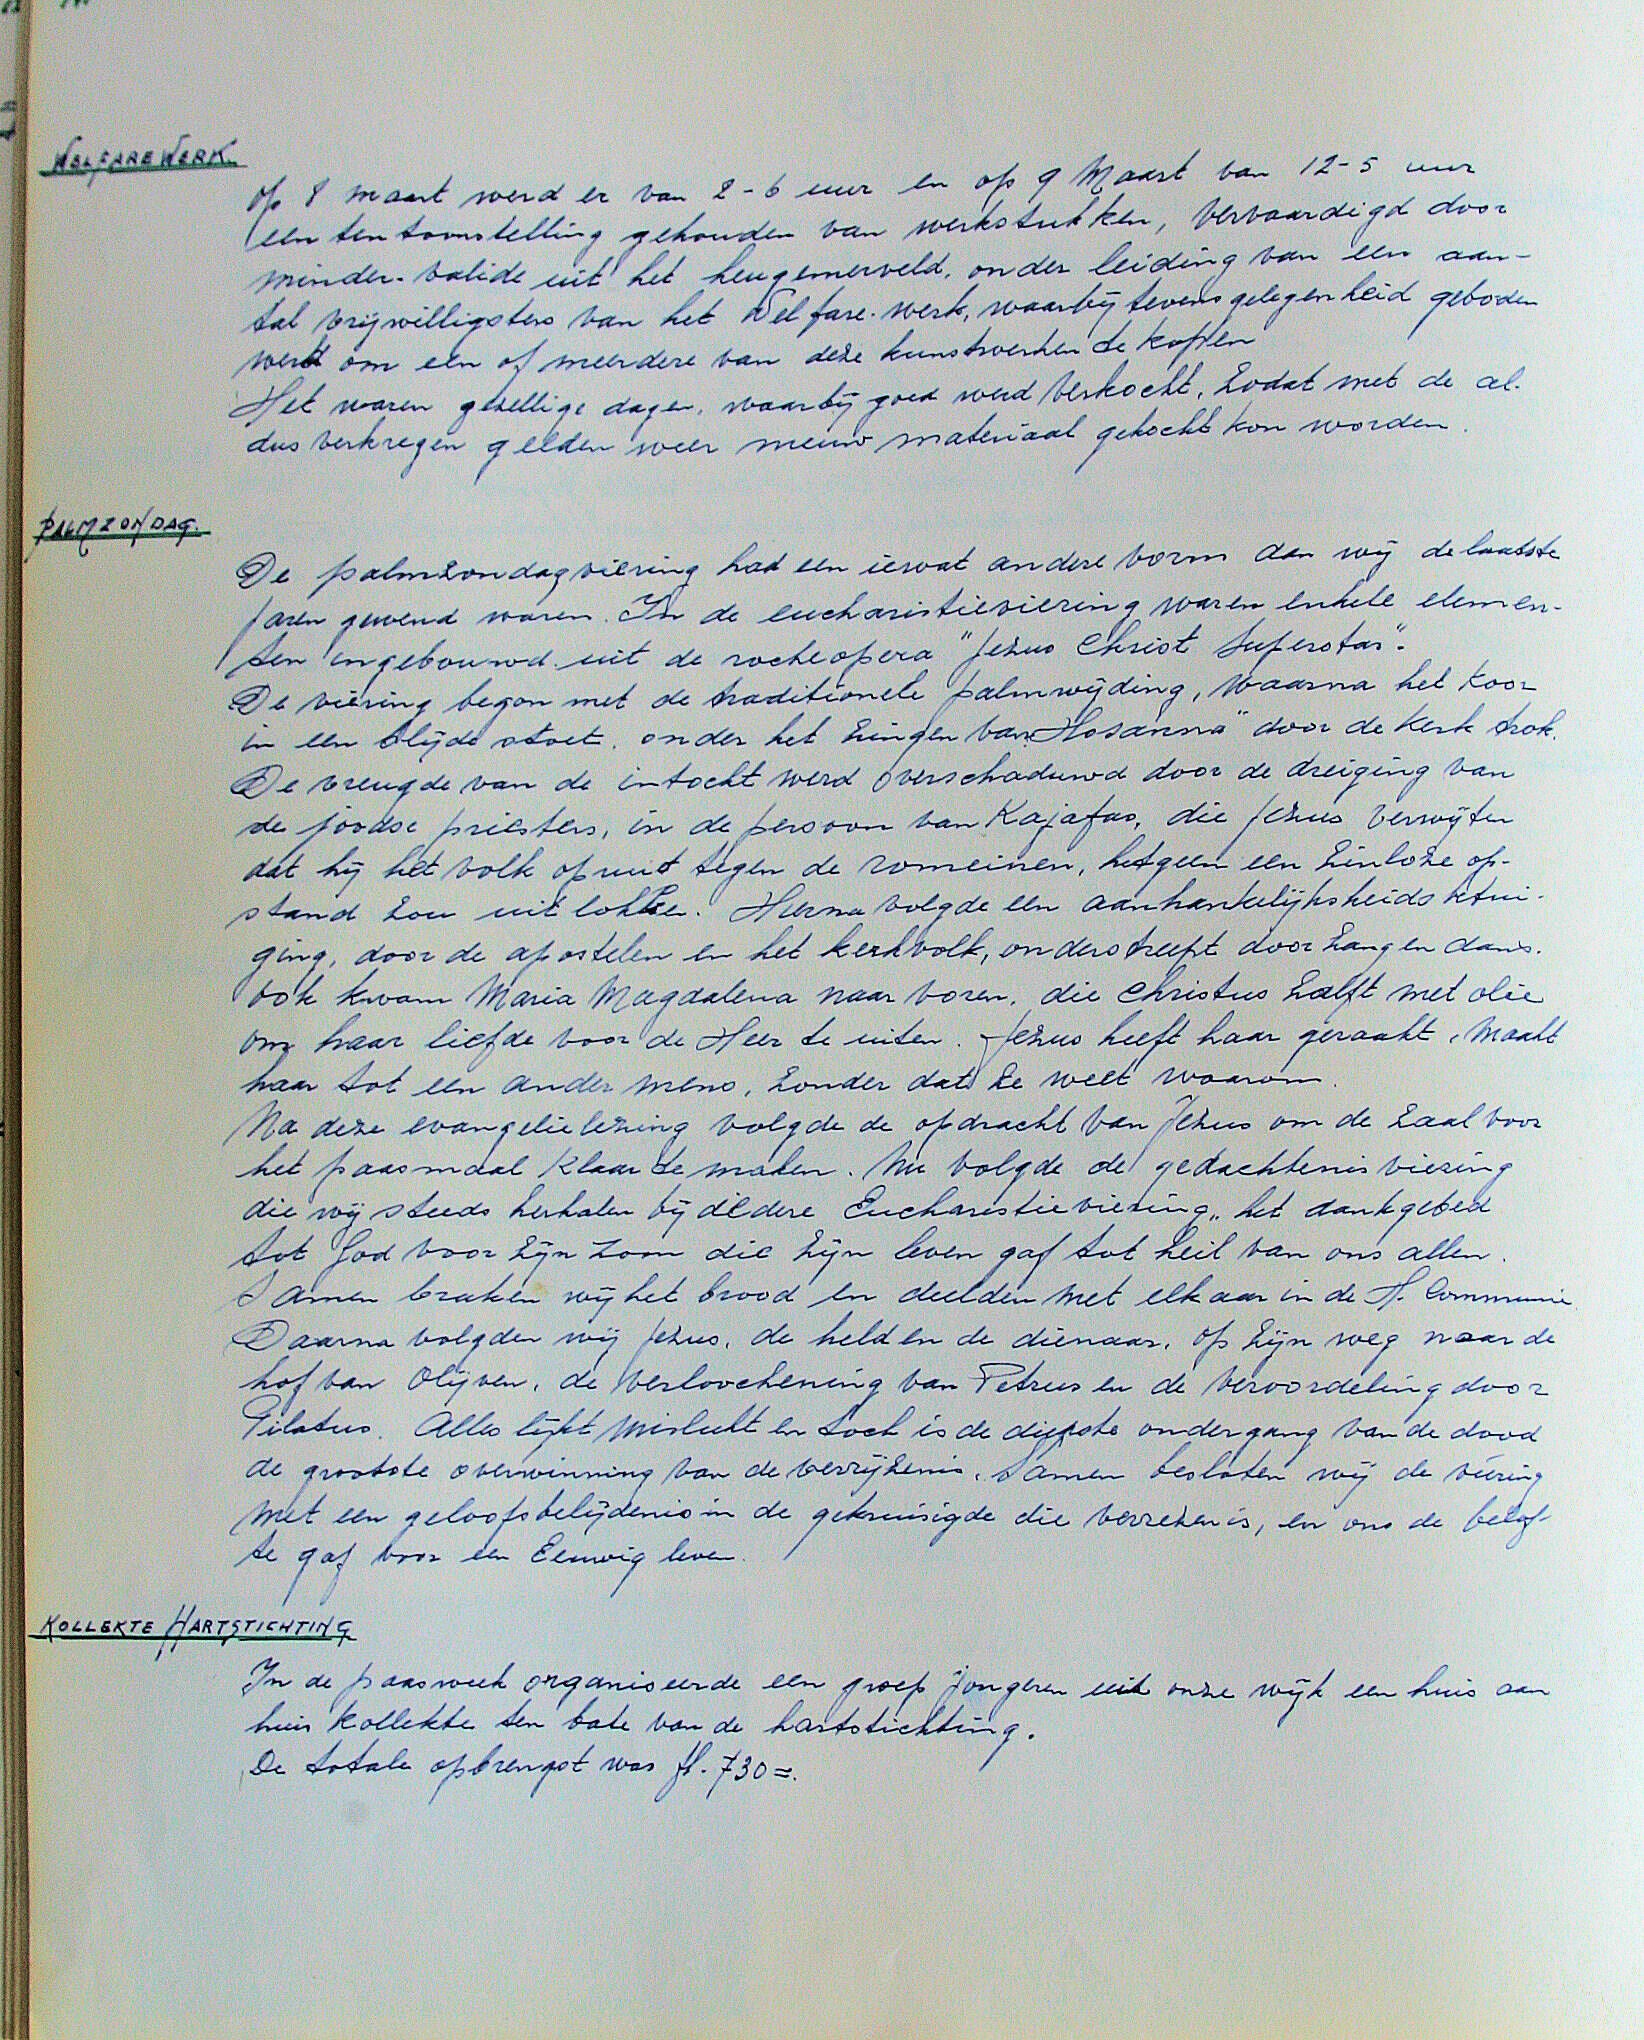 WELFAREWERK.
Op 8 maart werd er van 2-6 uur en op 9 Maart van 12-5 uur
een tentoonstelling gehouden van werkstukken, vervaardigd door
minder-valide uit het heugemerveld, onder leiding van een aan-
tal vrijwilligsters van het Welfare-werk, waarbij tevens gelegenheid geboden
werd om een of meerdere van deze kunstwerken te kopen
Het waren gezellige dagen, waarbij goed werd verkocht, zodat met de al-
dus verkregen gelden weer nieuw materiaal gekocht kon worden.
PALMZONDAG.
De palmzondagviering had een iewat andere vorm dan wij de laatste
jaren gewend waren. In de eucharistieviering waren enkele elemen-
ten ingebouwd uit de rockopera "Jezus Christ Superstar".
De viering begon met de traditionele palmwijding, waarna het koor
in een blijde stoet, onder het zingen van "Hosanna" door de kerk trok.
De vreugde van de intocht werd overschaduwd door de dreiging van
de joodse priesters, in de persoon van Kajafas, die Jezus verwijten
dat hij het volk opruit tegen de romeinen, hetgeen een zinloze op-
stand zou uitlokken. Hierna volgde een aanhankelijksheidsbetui-
ging, door de apostelen en het kerkvolk, onderstreept door zang en dans.
ook kwam Maria Magdalena naar voren, die Christus zalft met olie
om haar liefde voor de Heer te uiten. Jezus heeft haar geraakt, maakt
haar tot een ander mens, zonder dat ze weet waarom.
Na deze evangelielezing volgde de opdracht van Jezus om de zaal voor
het paasmaal klaar te maken. Nu volgde de gedachtenisviering
die wij steeds herhalen bij iedere Eucharistieviering,, het dankgebed
tot God voor zijn zoon die zijn leven gaf tot heil van ons allen.
Samen braken wij het brood en deelden met elkaar in de H. Communie
Daarna volgden wij Jezus, de held en de dienaar, op zijn weg naar de
hof van Olijven, de verloochening van Petrus en de veroordeling door
Pilatus. Alles lijkt mislukt en toch is de diepste ondergang van de dood
de grootste overwinning van de verrijzenis. Samen besloten wij de viering
met een geloofsbelijdenis in de gekruisigde die verrezen is, en ons de belof-
te gaf voor een Eeuwig leven.
KOLLEKTE HARTSTICHTING
In de paasweek organiseerde een groep jongeren uit onze wijk een huis aan
huis kollekte ten bate van de hartstichting.
De totale opbrengst was fl. 730=.